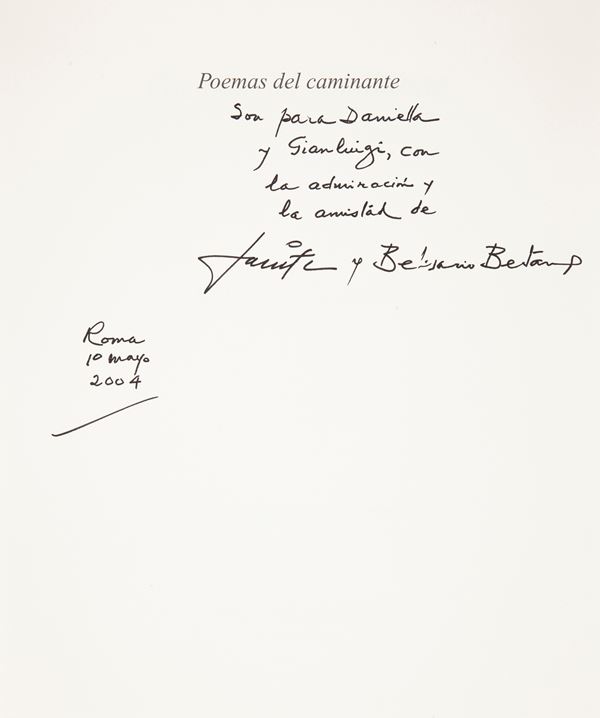 Poemas del caminante
Son para Daniella
y Gianluigi, con
la admiración y
la amistad de
y Belisario Betancur
Roma
10 mayo
2004